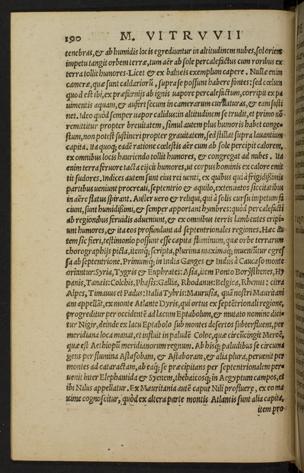 190 M. VITRVVII
tenebras, & ab humidis locis egrediuntur in altitudinem nubes, sed oriens
impetu tangit orbem terræ, tum aër ab sole percalefactus cum roribus ex
terra tollit humores. Licet & ex balneis exemplum capere. Nullæ enim
cameræ, quæ sunt caldariorũ, supra se possunt habere fontes: sed cœlum
quod est ibi, ex præfurnijs ab ignis vapore percalefactum, corripit ex pa
uimentis aquam, & aufert secum in camerarum curuaturas, & eam susti
net. Ideo quòd semper vapor calidus in altitudinem se trudit, et primò nõ
remittitur propter breuitatem, simul autem plus humoris habet conge-
stum, non potest sustineri propter grauitatem, sed stillat supra lauantium
capita. Ita quoq; eadẽ ratione cœlestis aër cum ab sole percipit calorem,
ex omnibus locis hauriendo tollit humores, & congregat ad nubes. Ita
enim terra feruore tacta eijcit humores, ut corpus hominis ex calore emit
tit sudores. Indices autem sunt eius rei uenti, ex quibus qui à frigidissimis
partibus ueniunt procreati, septentrio & aquilo, extenuatos siccitatibus
in aëre flatus spirant. Auster uero & reliqui, qui à solis cursu impetum fa
ciunt, sunt humidissimi, & semper apportant hymbres: quòd percalefacti
ab regionibus feruidis adueniunt, & ex omnibus terris lambentes eripi-
unt humores, & ita eos profundunt ad septentrionales regiones. Hæc au
tem sic fieri, testimonio possunt esse capita fluminum, quæ orbe terrarum
chorographijs picta, itemq; scripta, plurima maximaq; inueniũtur egres
sa ab septentrione. Primumq; in India Ganges & Indus à Caucaso monte
oriuntur: Syria, Tygris & Euphrates: Asia, item Ponto Borysthenes, Hy
panis, Tanais: Colchis, Phasis: Gallia, Rhodanus: Belgica, Rhenus: citra
Alpes, Timauus et Padus: Italia Tybris: Maurusia, quã nostri Mauritani
am appellãt, ex monte Atlante Dyris, qui ortus ex septẽtrionali regione,
progreditur per occidentẽ ad lacum Eptabolum, & mutato nomine dici-
tur Nigir, deinde ex lacu Eptabolo sub montes desertos subterfluens, per
meridiana loca manat, et influit in paludẽ Coloe, quæ circũcingit Meroẽ,
quæ est Aethiopũ meridianorum regnum. Ab hisq; paludibus se circuma
gens per flumina Astasobam, & Astaboram, & alia plura, peruenit per
montes ad cataractam, ab eaq; se præcipitans per septentrionalem per-
uenit inter Elephantida & Syenem, thebaicosq; in Aegyptum campos, et
ibi Nilus appellatur. Ex Mauritania autẽ caput Nili profluere, ex eo ma
xime cognoscitur, quòd ex altera parte montis Atlantis sunt alia capita,
item pro-